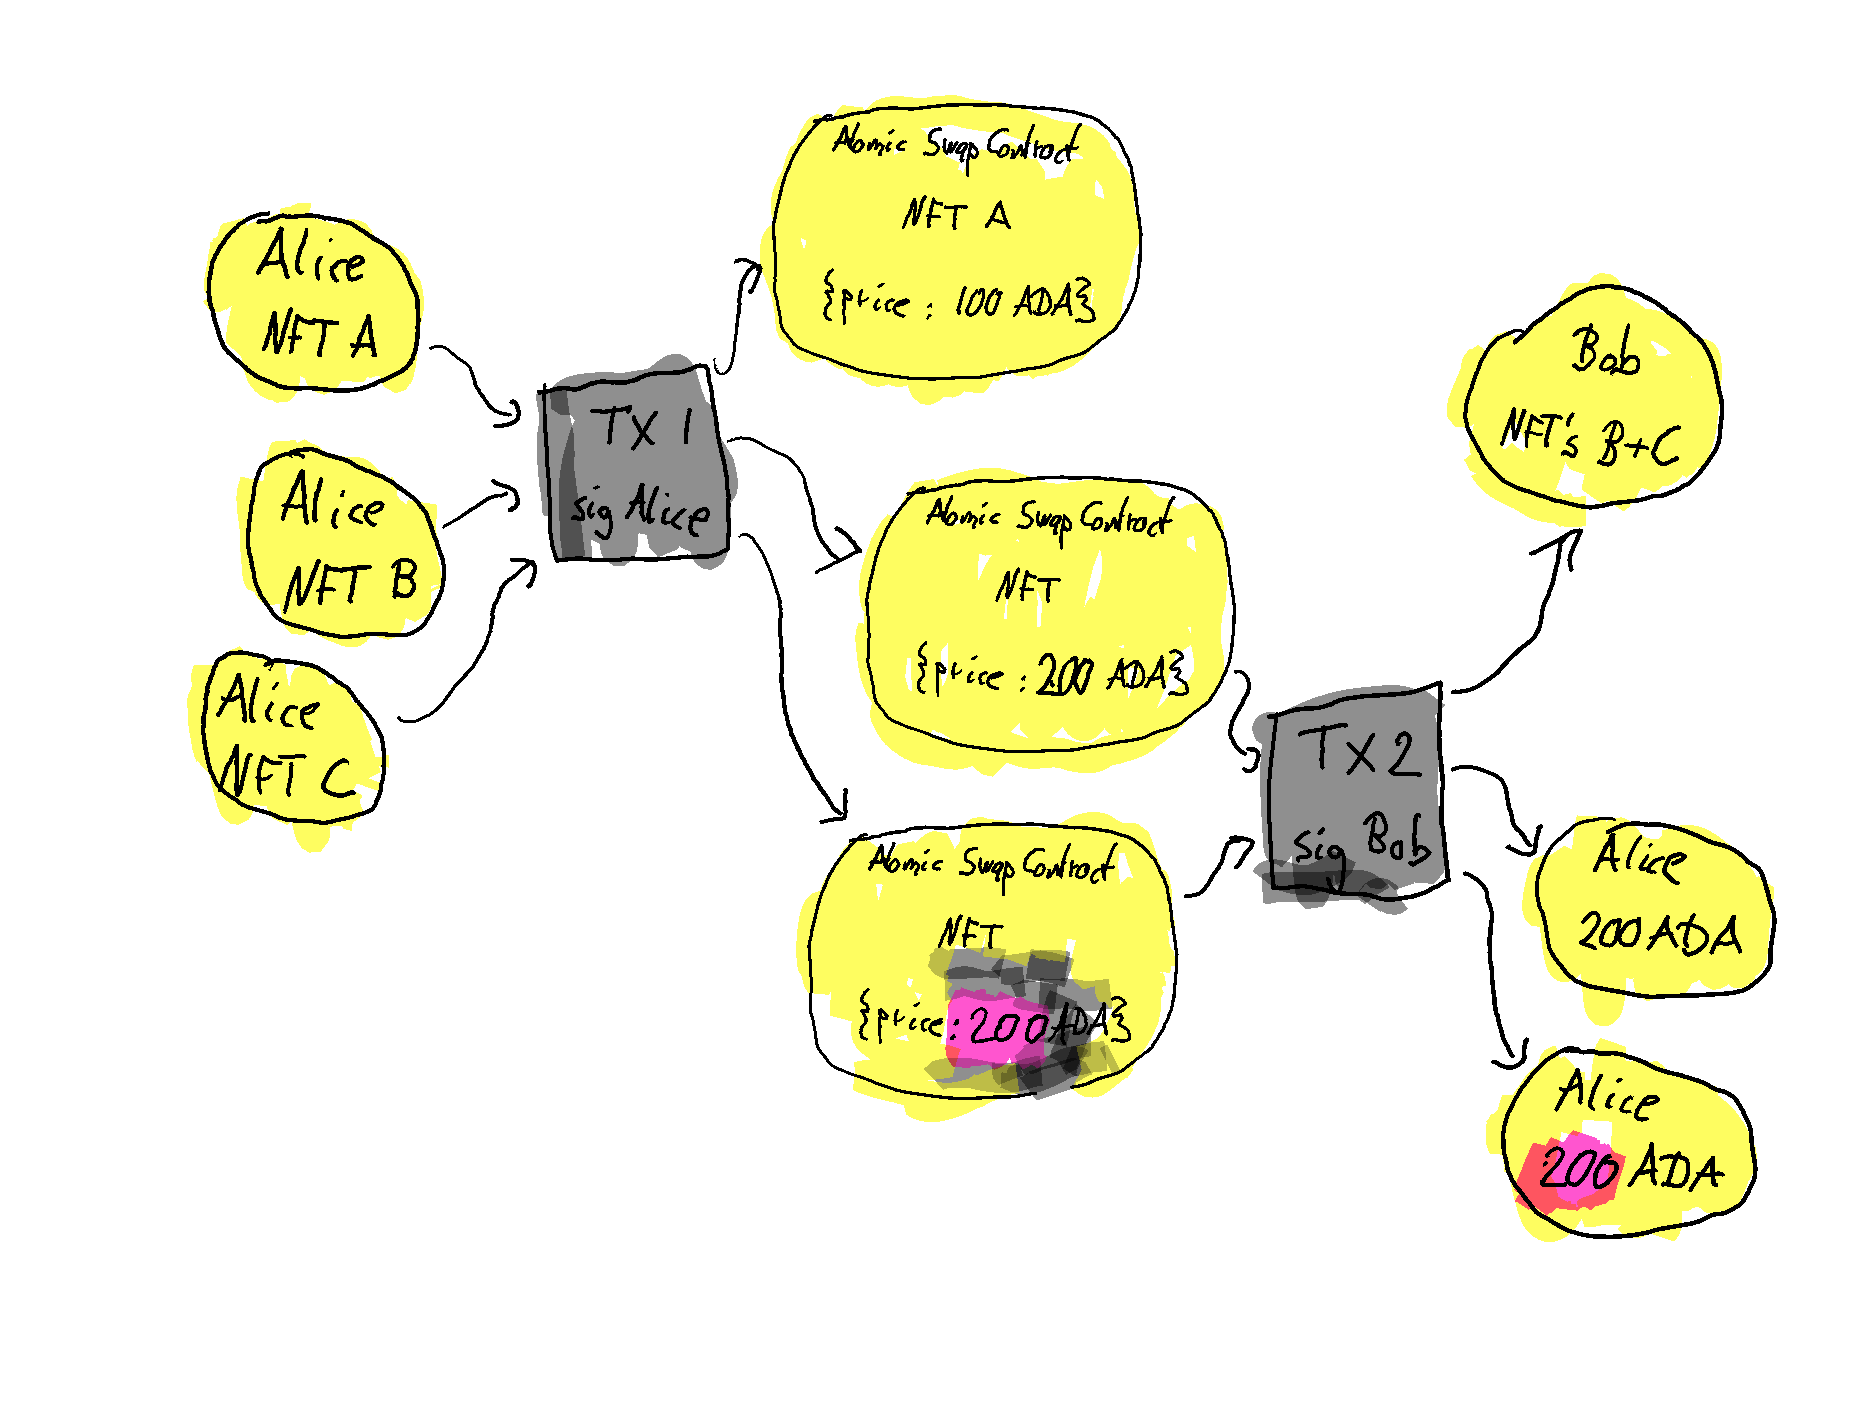 Alice
NFT A
Alice
NFT B
Alice
NFT C
TX 1
sig Alice
Atomic Swap Contract
NFT A
{price : 100 ADA}
Atomic Swap Contract
NFT
{price : 200 ADA}
Atomic Swap Contract
NFT
{price : 200 ADA}
TX2
sig Bob
Bob
NFT's B+C
Alice
200 ADA
Alice
200 ADA